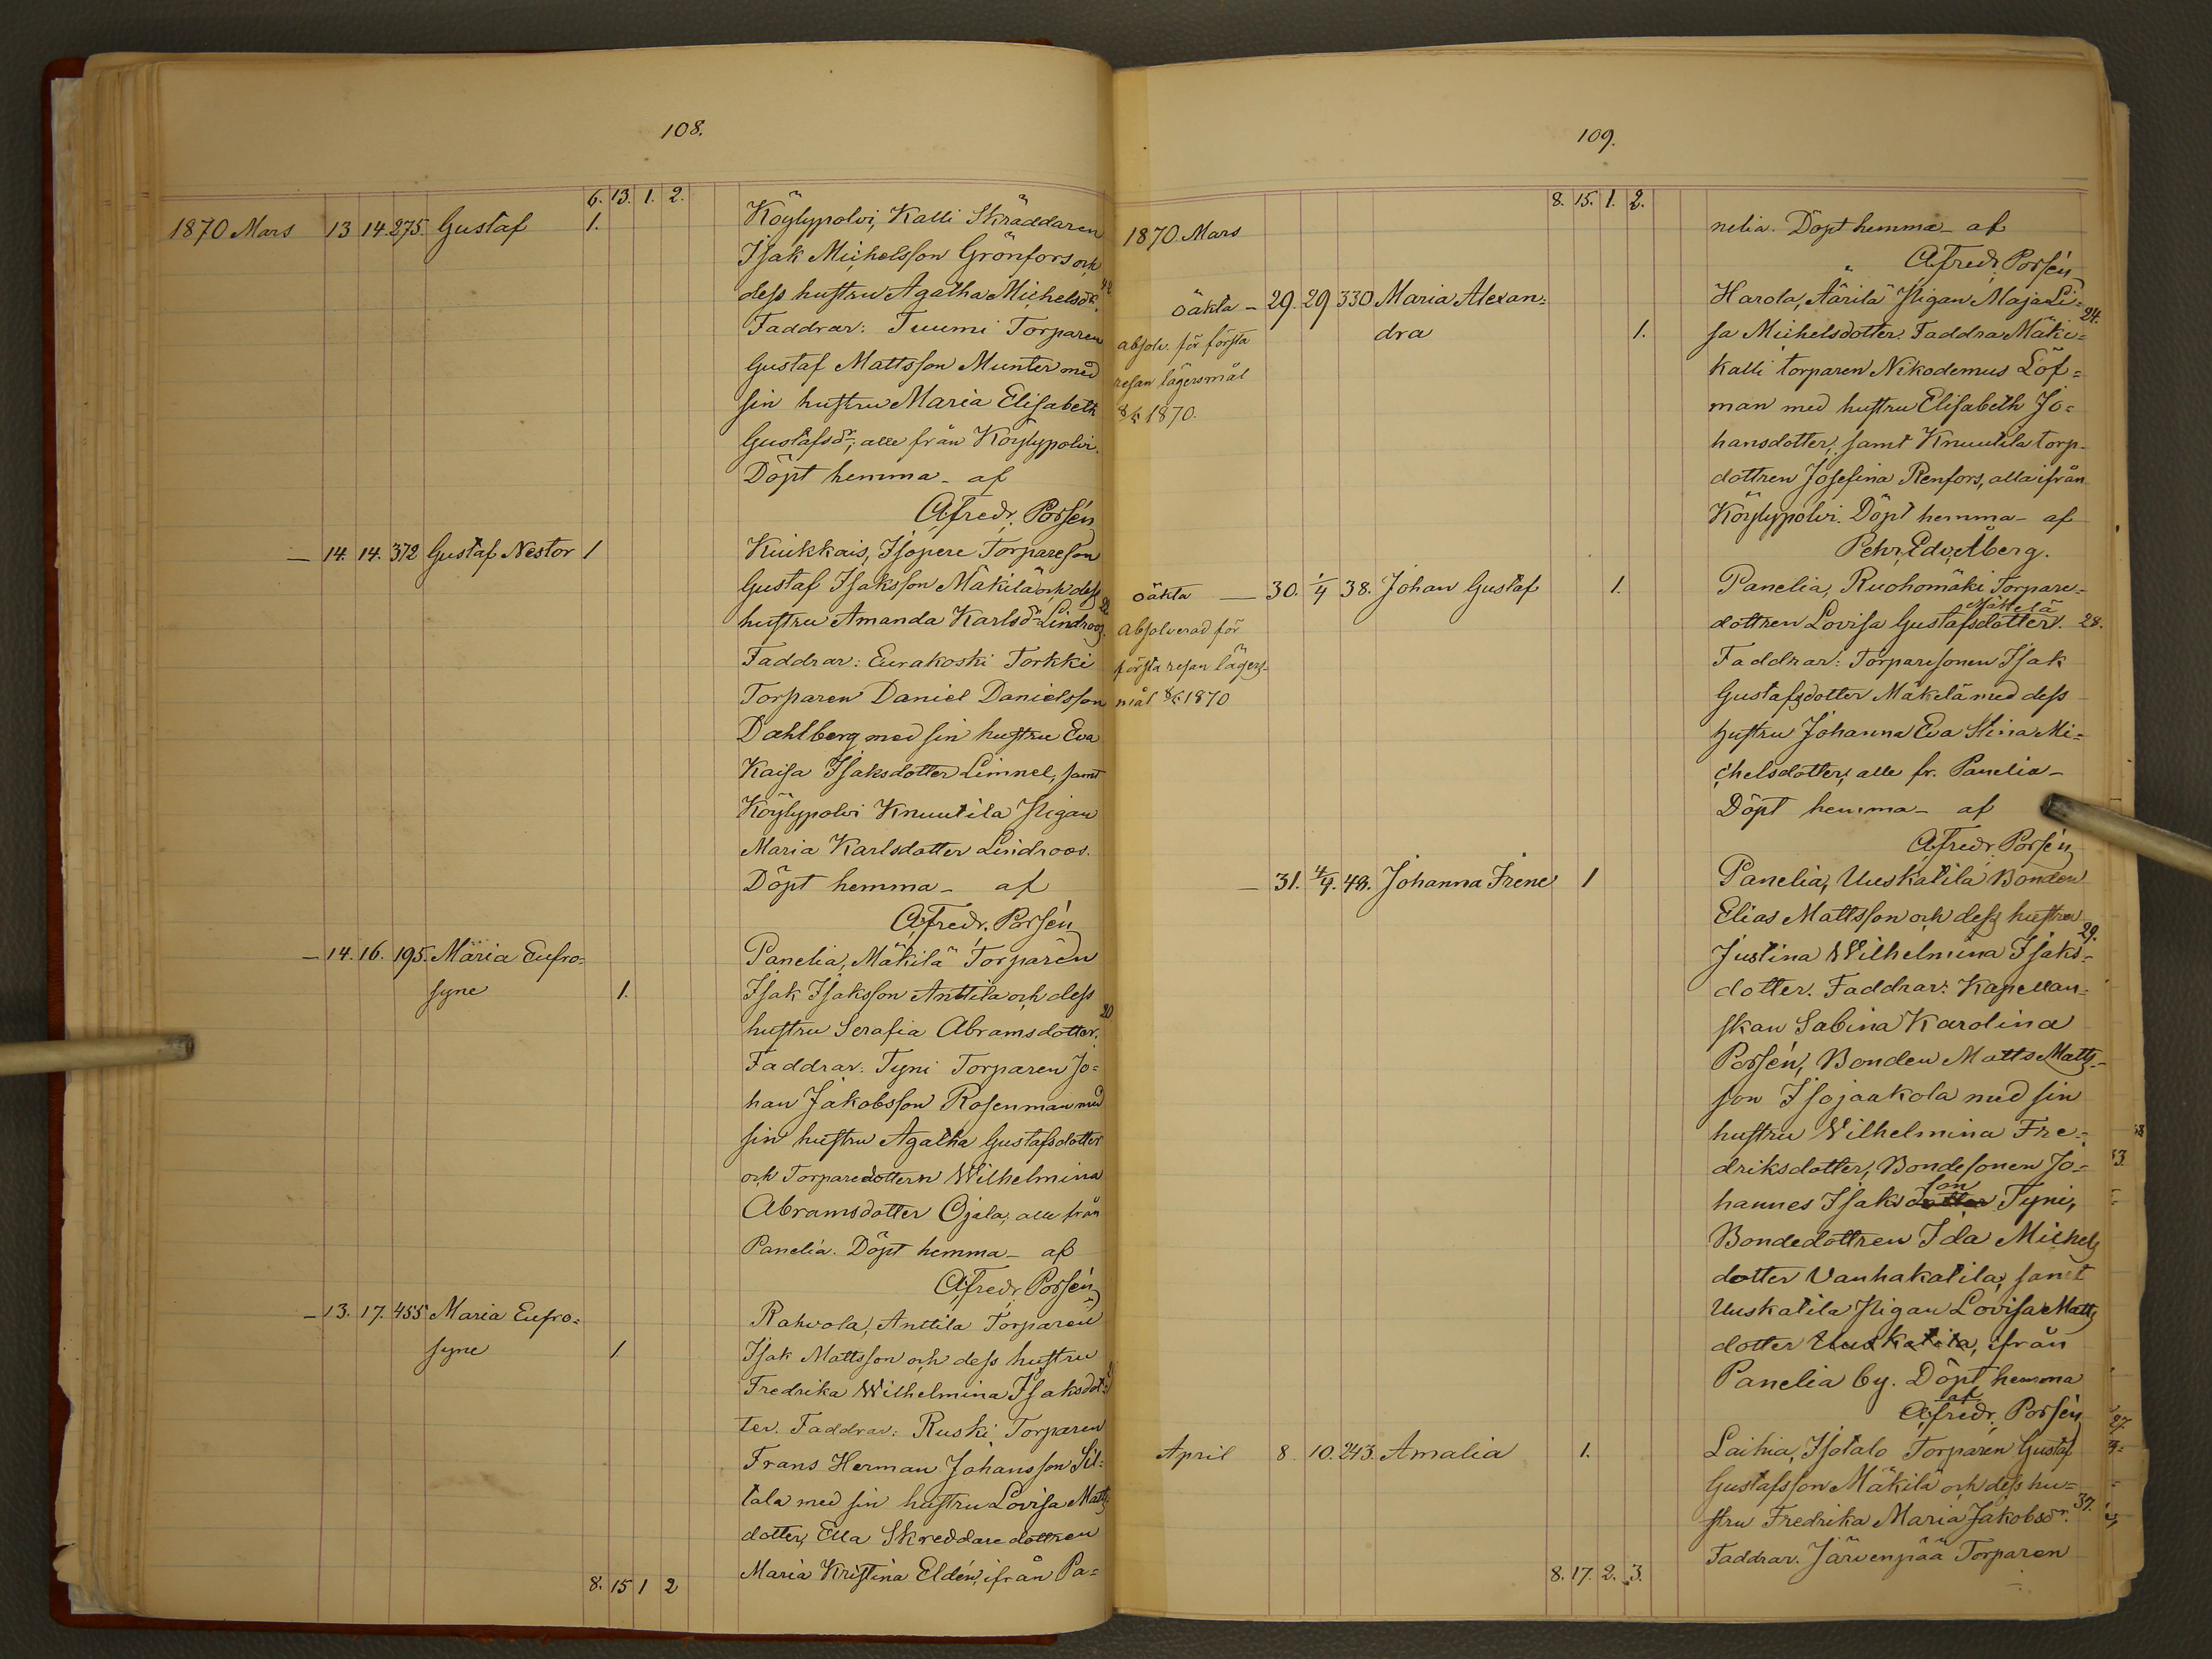 108.
6. 13. 1. 2.
1870 Mars 13 14. 275. Gustaf 1. Köylypolvi, Kalli Skräddaren
Isak Michelsson Grönfors och
dess hustru Agatha Michelsdr. 42
Faddrar: Tuumi Torparen
Gustaf Mattsson Munter med
sin hustru Maria Elisabeth
Gustafsdr, alle från Köylypolvi.
Döpt hemma - af
A. Fredr. Porsén
— 14. 14. 372 Gustaf Nestor 1 Kiukkais, Isopere Torpareson
Gustaf Isaksson Mäkilä och dess
hustru Amanda Karlsdr Lindroos.
Faddrar: Eurakoski Torkki
Torparen Daniel Danielsson
Dahlberg med sin hustru Eva
Kaisa Isaksdotter Limnel, samt
Köylypolvi Knuutila Pigan
Maria Karlsdotter Lindroos.
Döpt hemma - af
A. Fredr. Porsén
— 14. 16. 195. Maria Eufro= Panelia, Mäkilä Torparen
syne 1. Isak Isaksson Anttila och dess
hustru Serafia Abramsdotter. 20
Faddrar: Tyni Torparen Jo=
han Jakobsson Rosenman med
sin hustru Agatha Gustafsdotter
och Torparedottern Wilhelmina
Abramsdotter Ojala, alle från
Panelia. Döpt hemma - af
A. Fredr. Porsén
— 13. 17. 455 Maria Eufro= Rahvola, Anttila Torparen
syne 1. Isak Mattsson och dess hustru
Fredrika Wilhelmina Isaksdot=
ter. Faddrar: Ruski Torparen
Frans Herman Johansson Sil=
tala med sin hustru Lovisa Matts
dotter, Ella Skreddaredottren
Maria Kristina Eldén, ifrån Pa=
8. 15 1 2
109.
8. 15. 1. 2.
1870 Mars nelia. Döpt hemma - af
A. Fredr. Porsén
oäkta — 29. 29 330 Maria Alexan= Harola, Äärilä Pigan Maja Li= 24.
absolv. för första dra 1. sa Michelsdotter. Faddrar Mäki=
resan lägersmål kalli torparen Nikodemus Löf=
8/5 1870. man med hustru Elisabeth Jo=
hansdotter, samt Knuutila torp-
dottren Josefina Renfors, alla ifrån
Köylypolvi. Döpt hemma - af
Pehr Edv. Åberg.
oäkta — 30. 1/4 38. Johan Gustaf 1. Panelia, Ruohomäki Torpare-
Mäkelä
Absolverad för dottren Lovisa Gustafsdotter. 28.
första resan lägers- Faddrar: Torparesonen Isak
mål 8/5 1870 Gustafsdotter Mäkelä med dess
hustru Johanna Eva Stina Mi=
chelsdotter, alle fr. Panelia -
Döpt hemma - af
A. Fredr. Porsén
— 31. 4/4. 48. Johanna Irene 1 Panelia, Uuskatila Bonden
Elias Mattsson och dess hustru 29.
Justina Wilhelmina Isaks-
dotter. Faddrar: Kapellan-
skan Sabina Karolina
Porsén, Bonden Matts Matts-
son Isojaakola med sin
hustru Wilhelmina Fre=
driksdotter, Bondesonen Jo-
son
hannes Isaksdotter Tyni,
Bondedottren Ida Michels
dotter Vanhakatila, samt
Uuskatila Pigan Lovisa Matts
dotter Uuskatila, ifrån
Panelia by. Döpt hemma
af
A. Fredr. Porsén
April 8. 10. 243. Amalia 1. Laihia, Isotalo Torparen Gustaf
Gustafsson Mäkilä och dess hu= 37.
stru Fredrika Maria Jakobsdr.
Faddrar. Järvenpää Torparen
8. 17. 2. 3.